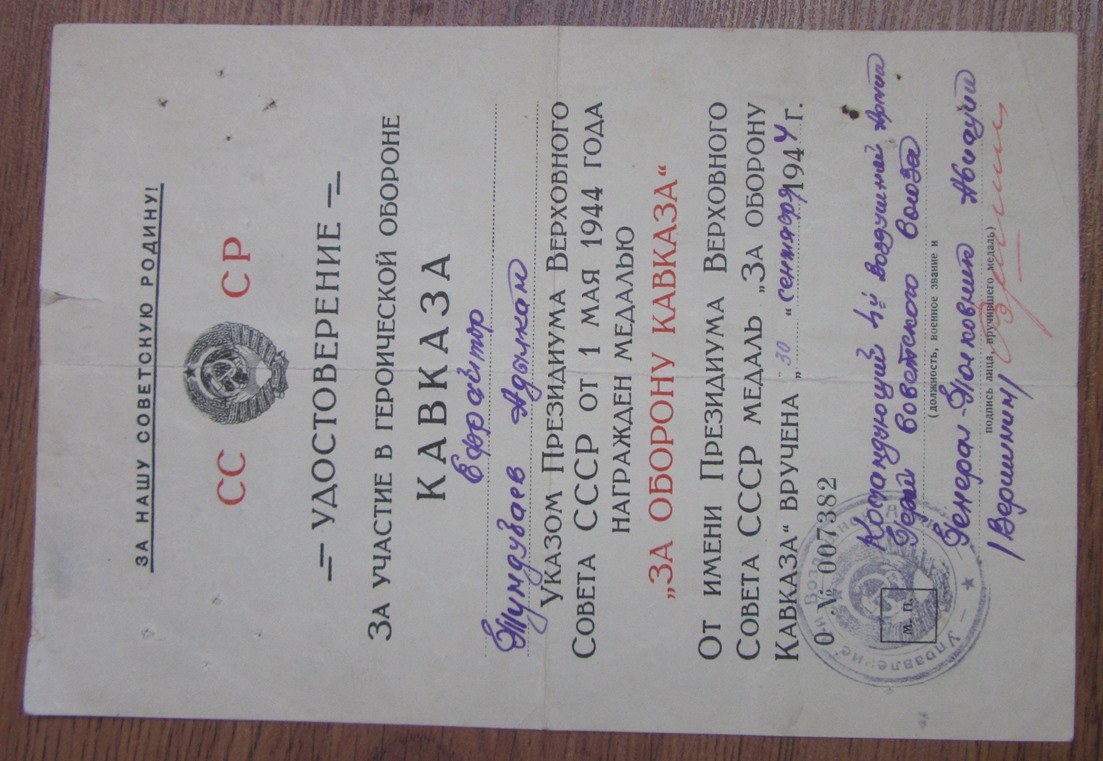 ЗА НАШУ СОВЕТСКУЮ РОДИНУ!
СС СР
УДОСТОВЕРЕНИЕ
ЗА УЧАСТИЕ В ГЕРОИЧЕСКОЙ ОБОРОНЕ
КАВКАЗА
Ефрейтор
УКАЗОМ ПРЕЗИДИУМА ВЕРХОВНОГО
СОВЕТА СССР ОТ 1 МАЯ 1944 ГОДА
НАГРАЖДЕН МЕДАЛЬЮ
„ЗА ОБОРОНУ КАВКАЗА“
ОТ ИМЕНИ ПРЕЗИДИУМА ВЕРХОВНОГО
СОВЕТА СССР МЕДАЛЬ „ЗА ОБОРОНУ
КАВКАЗА“ ВРУЧЕНА „30“ сентября 1944 г.
О № 007382
Командующий 4й Воздушной Армии
Герой Советского Союза
(должность, военное звание и
Генерал-Полковник Авиации
подпись лица, вручившего медаль)
/Вершинин/
М. П.
Управление